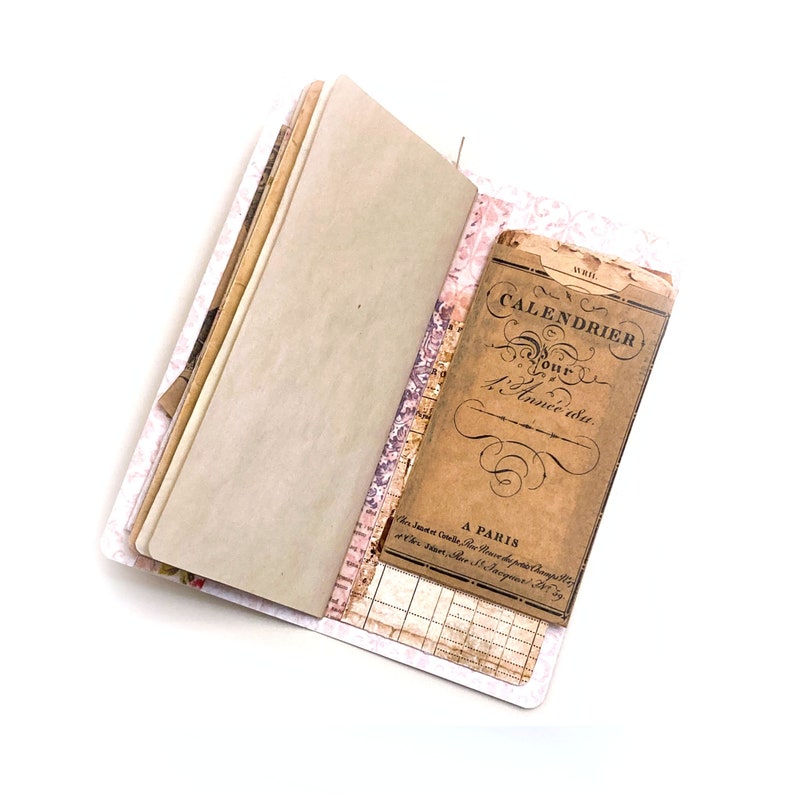 AVRIL.
CALENDRIER
Pour
L'Année 1811.
A PARIS
Chez Janet et Cotelle, Rue Neuve des petits Champs N° 17
et Chez Janet, Rue St. Jacques, N° 59.